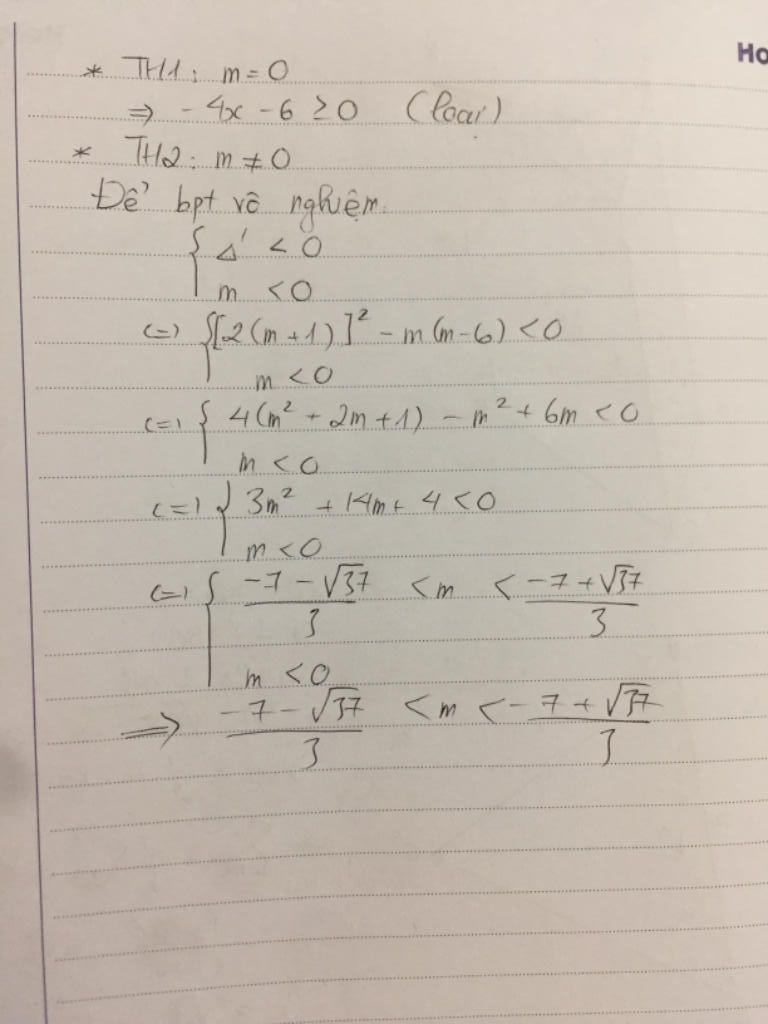 Ho
* TH1: m = 0
⇒ - 4x - 6 ≥ 0 (loại)
* TH2: m ≠ 0
Để bpt vô nghiệm.
{ Δ' < 0
m < 0
(=) { [2(m+1)]² - m(m-6) < 0
m < 0
(=) { 4(m² + 2m + 1) - m² + 6m < 0
m < 0
(=) { 3m² + 14m + 4 < 0
m < 0
(=) { (-7 - √37)/3 < m < (-7 + √37)/3
m < 0
⇒ (-7 - √37)/3 < m < (-7 + √37)/3